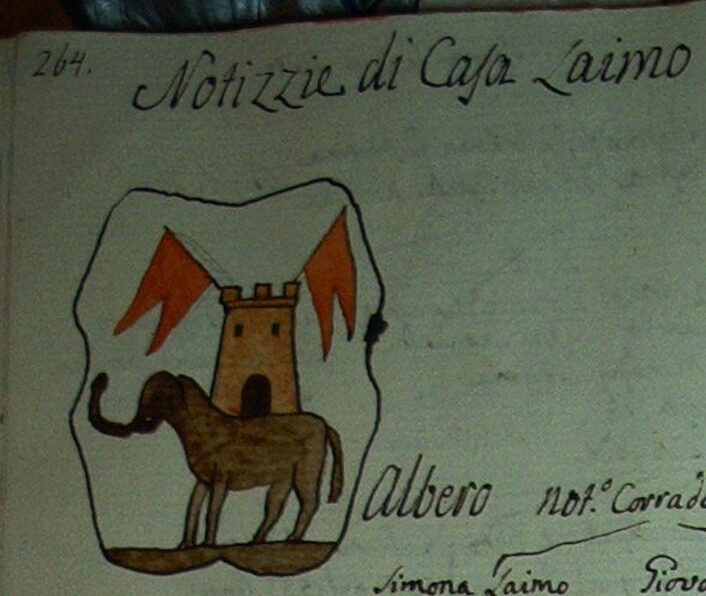 264.
Notizzie di Casa Laimo
Albero not.º Corrado
Simona Laimo Giova